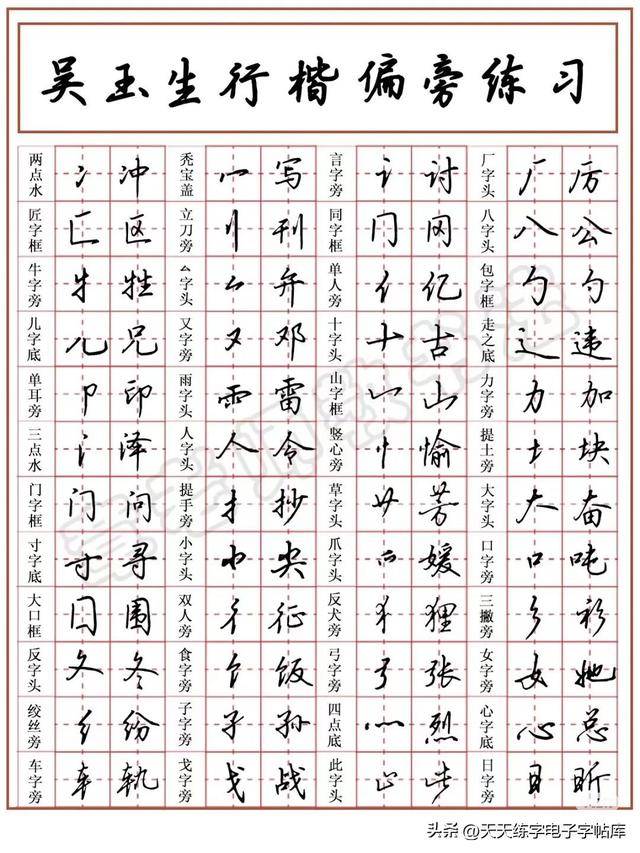 吴玉生行楷偏旁练习
两点水 冫 冲 秃宝盖 冖 写 言字旁 讠 讨 厂字头 厂 厉
匠字框 匚 区 立刀旁 刂 刊 同字框 冂 冈 八字头 八 公
牛字旁 牜 牲 厶字头 厶 弁 单人旁 亻 亿 包字框 勹 勺
儿字底 儿 兄 又字旁 又 邓 十字头 十 古 走之底 辶 违
单耳旁 卩 印 雨字头 雨 雷 山字框 山 山 力字旁 力 加
三点水 氵 泽 人字头 人 令 竖心旁 忄 愉 提土旁 土 块
门字框 门 问 提手旁 扌 抄 草字头 艹 芳 大字头 大 奋
寸字底 寸 寻 小字头 小 尖 爪字头 爫 媛 口字旁 口 吨
大口框 囗 围 双人旁 彳 征 反犬旁 犭 狸 三撇旁 彡 衫
反字头 夂 冬 食字旁 饣 饭 弓字旁 弓 张 女字旁 女 她
绞丝旁 纟 纷 子字旁 子 孙 四点底 灬 烈 心字底 心 总
车字旁 车 轨 戈字旁 戈 战 此字头 止 些 日字旁 日 昕
头条 @天天练字电子字帖库